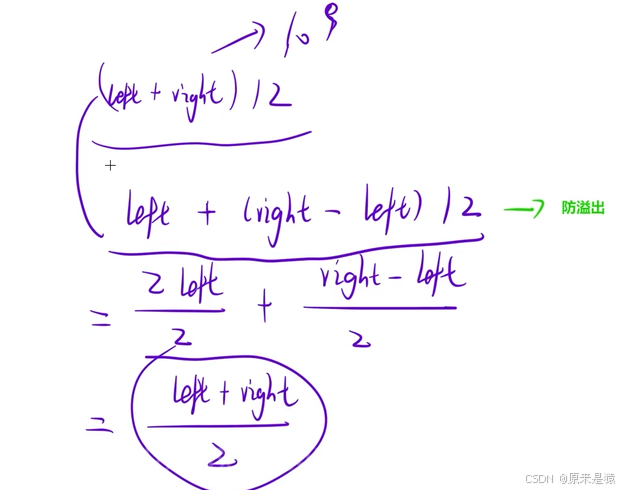 → 10^9
(left + right) / 2
left + (right - left) / 2 → 防溢出
= \frac{2 left}{2} + \frac{right - left}{2}
= \frac{left + right}{2}
CSDN @原来是猿